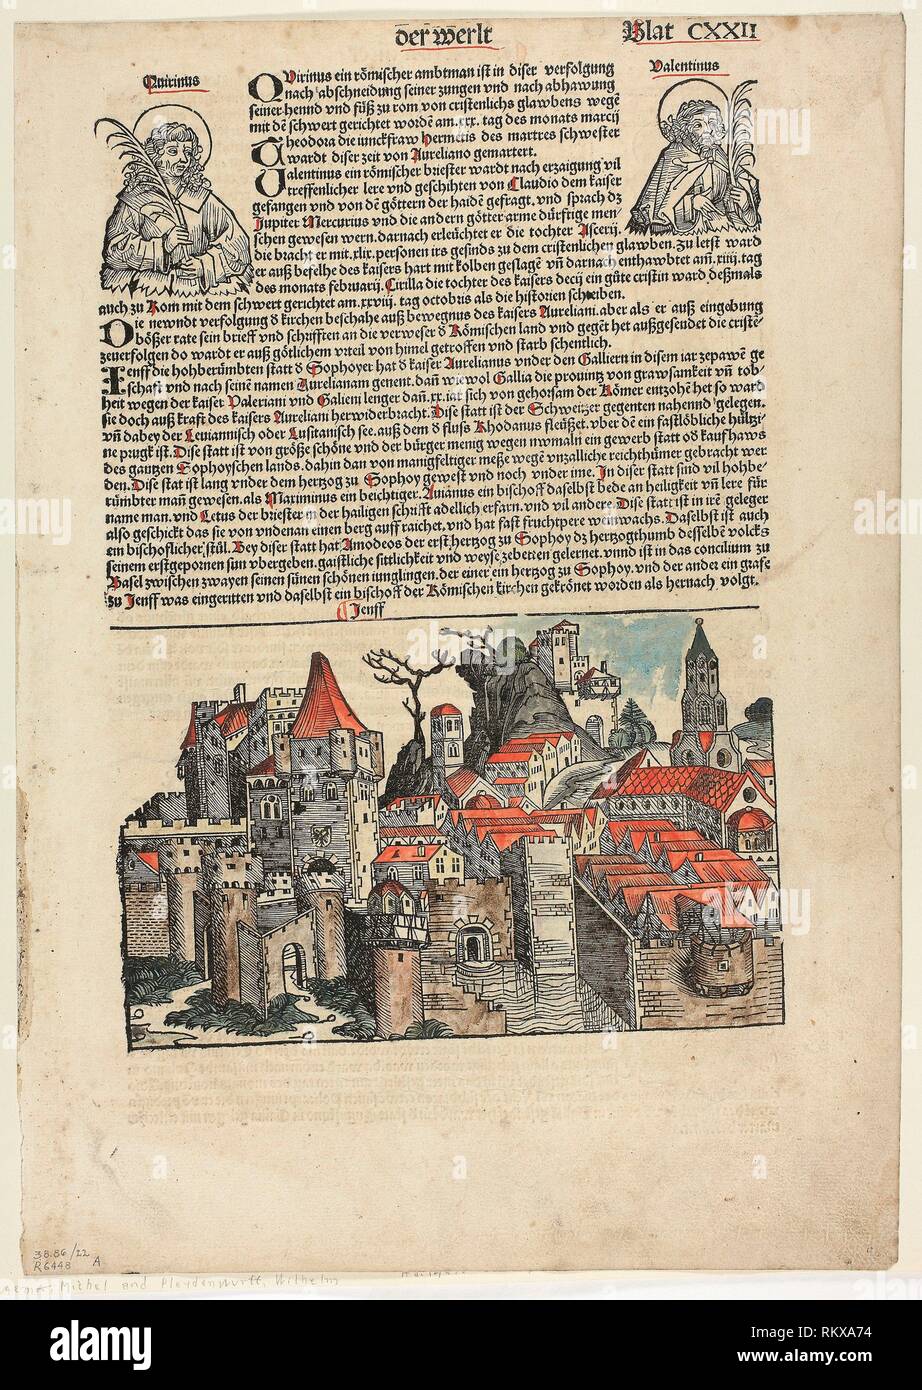 der werlt
Blat CXXII
Quirinus
Valentinus
QVirinus ein römischer ambtman ist in diser verfolgung
nach abschneidung seiner zungen vnd nach abhawung
seiner hennd vnd füß zu rom von cristenlichs glawbens wegē
mit dē schwert gerichtet wordē am .xxx. tag des monats marcij
Theodora die iunckfraw hermetis des martres schwester
wardt diser zeit von Aureliano gemartert.
Valentinus ein römischer briester wardt nach erzaigung vil
treffenlicher lere vnd geschihten von Claudio dem kaiser
gefangen vnd von dē göttern der haidē gefragt. vnd sprach dz
Jupiter Mercurius vnd die andern götter arme dürfrige men
schen gewesen wern. darnach erleüchtet er die tochter Asterij.
die bracht er mit .xlix. personen irs gesinds zu dem cristenlichen glawben. Zu letst ward
er auß befelhe des kaisers hart mit kolben geslagē vn̄ darnach enthawbtet am .xiiij. tag
des monats februarij. Cirilla die tochter des kaisers decij ein gūte cristin ward deßmals
auch zu Rom mit dem schwert gerichtet am .xxviij. tag octobris als die historien schreiben.
Die newndt verfolgung d kirchen beschahe auß bewegnus des kaisers Aureliani. aber als er auß eingebung
bößer rate sein brieff vnd schrifften an die verweser d Römischen land vnd gegēt het außgesendet die cristē-
zeuerfolgen do wardt er auß götlichem vrteil von himel getroffen vnd starb schentlich.
Jenff die hohberümbten statt d Sophoyer hat d kaiser Aurelianus vnder den Galliern in disem iar zepawē ge
schaft vnd nach seinē namen Aurelianam genent. dan̄ wiewol Gallia die prouintz von grawsamkeit vn̄ tob-
heit wegen der kaiser Valeriani vnd Galieni lenger dan̄ .xx. iar sich von gehorsam der Römer entzohē het so ward
sie doch auß kraft des kaisers Aureliani herwiderbracht. Dise statt ist der Schweitzer gegenten nahend gelegen.
vn̄ dabey der Leviannisch oder Lusitanisch see. auß dem d fluss Rhodanus fleüßet. vber dē ein fastlöbliche hültzi-
ne prugk ist. Dise statt ist von größe schöne vnd der bürger menig wegen nwmaln ein gewerb statt od kaufhaws
des gantzen Sophoyschen lands. dahin dan von manigfeltiger meße wegē vnzalliche reichthümer gebracht wer
den. Dise stat ist lang vnder dem hertzog zu Sophoy gewest vnd noch vnder ime. In diser statt sind vil hohbe-
rümbter man̄ gewesen. als Maximinus ein beichtiger. Auianus ein bischoff daselbst bede an heiligkeit vn̄ lere für
name man. vnd Letus der briester in der hailigen schrifft adellich erfarn. vnd vil andere. Dise statt ist in irē geleger
also geschickt das sie von vndenan einen berg auff raichet. vnd hat fast fruchtpere weinwachs. Daselbst ist auch
ein bischoflicher stůl. Bey diser statt hat Amodeos der erst hertzog zu Sophoy dz hertzogthumb desselben volcks
seinem erstgepornen sun vbergeben. gaistliche sittlichkeit vnd weyse zebetten gelernet. vnnd ist in das concilium zu
Basel zwischen zwayen seinen sünen schönen iunglingen. der einer ein hertzog zu Sophoy. vnd der ander ein grafe
zu Jenff was eingeritten vnd daselbst ein bischoff der Römischen kirchen gekrönet worden als hernach volgt.
Jenff
38.86/22
R6448 A
Michel and Pleydenwurff, Wilhelm
alamy
alamy stock photo
RKXA74
www.alamy.com